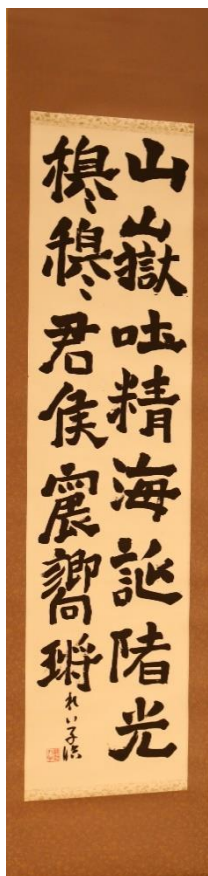 山嶽吐精海誕陼光
穆穆君侯震響
れい子臨